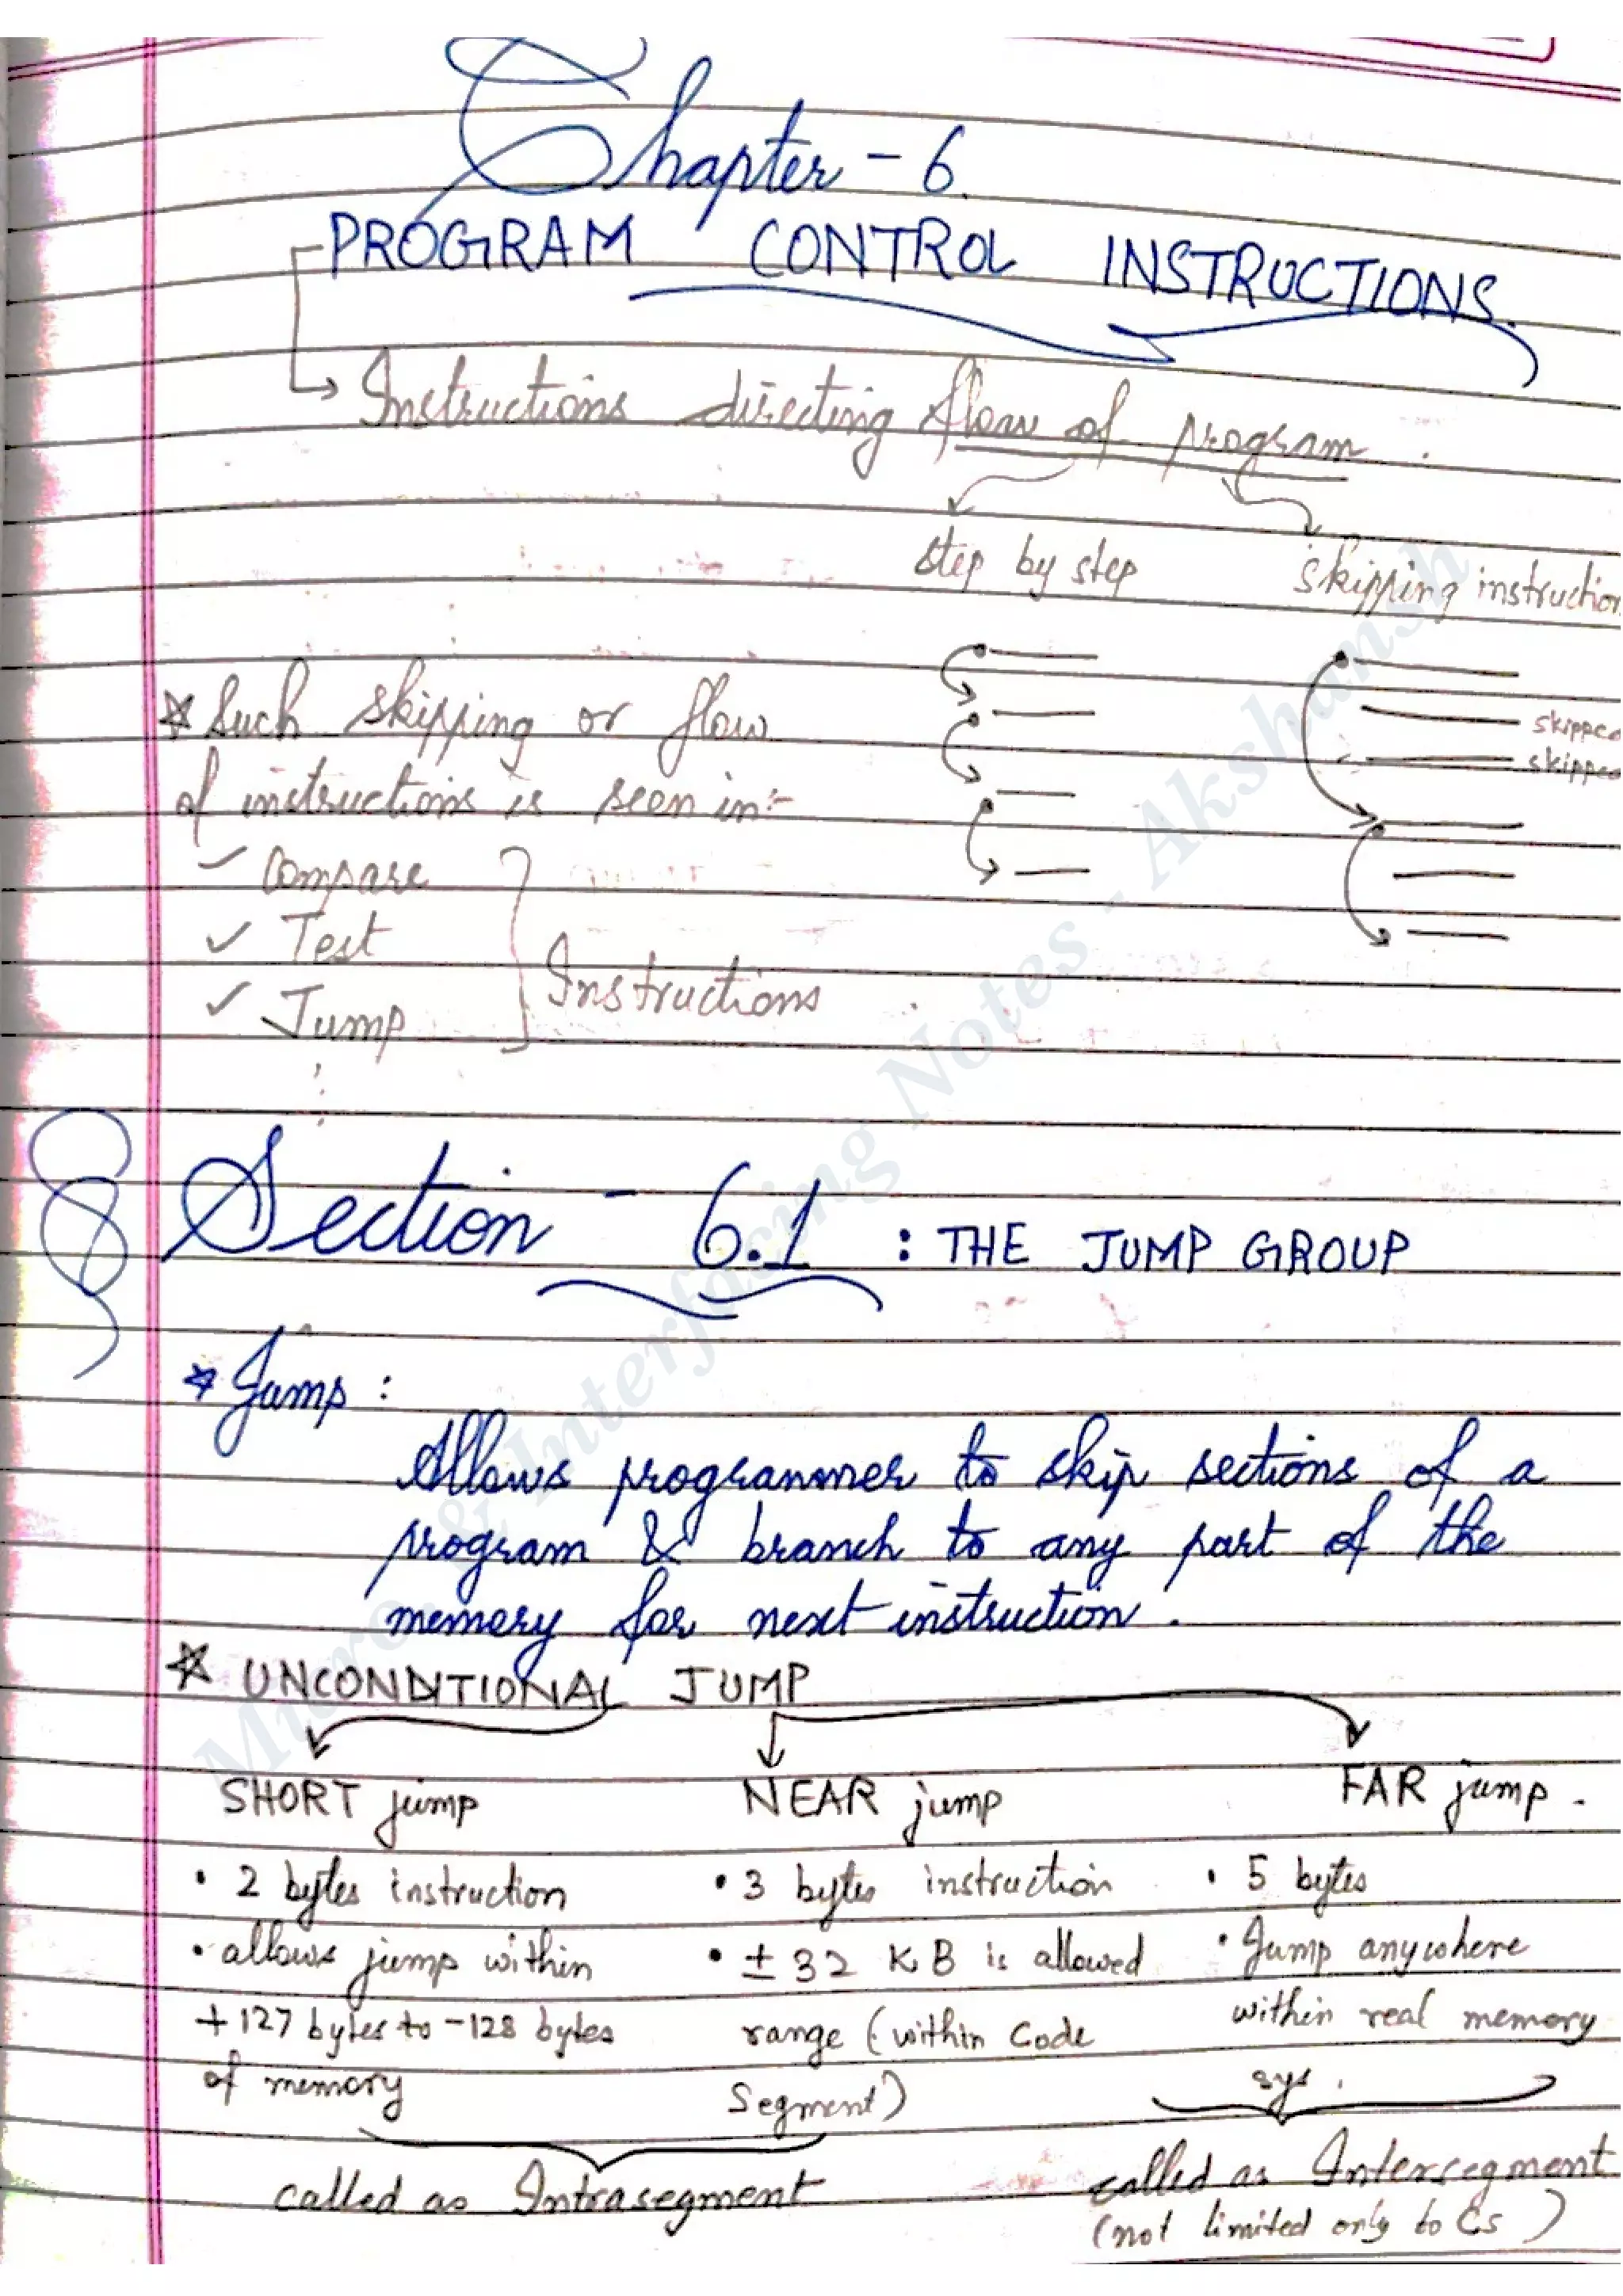 Chapter - 6.
PROGRAM CONTROL INSTRUCTIONS.
Instructions directing flow of program.
step by step
skipping instruction
skipped
skipped
* Such skipping or flow
of instructions is seen in:-
✓ Compare
✓ Test
✓ Jump
Instructions
Section - 6.1 : THE JUMP GROUP
* Jump :
Allows programmer to skip sections of a
program & branch to any part of the
memory for next instruction.
* UNCONDITIONAL JUMP
SHORT jump
• 2 bytes instruction
• allows jump within
+127 bytes to -128 bytes
of memory
NEAR jump
• 3 bytes instruction
• ± 32 KB is allowed
range (within Code
Segment)
called as Intrasegment
FAR jump.
• 5 bytes
• Jump anywhere
within real memory
sys.
called as Intersegment
(not limited only to CS)
Micro. & Interfacing Notes - Akshansh